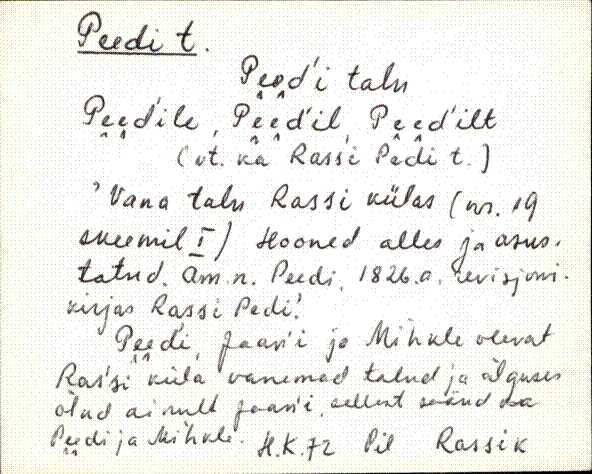 Peedi t.
Peed'i talu
Peed'ile, Peed'il, Peed'ilt
(vt. ka Rassi Pedi t.)
'Vana talu Rassi külas (nr. 19
skeemil I) Hooned alles ja asus-
tatud. Am.n. Peedi, 1826.a. revisjoni-
kirjas Rassi Pedi'.
Peedi, Jaan'i ja Mihkle olevat
Ras'si küla vanemad talud ja alguses
olnud ainult Jaan'i, sellest
Peedi ja Mihkle. H.K.72 Pil Rassik